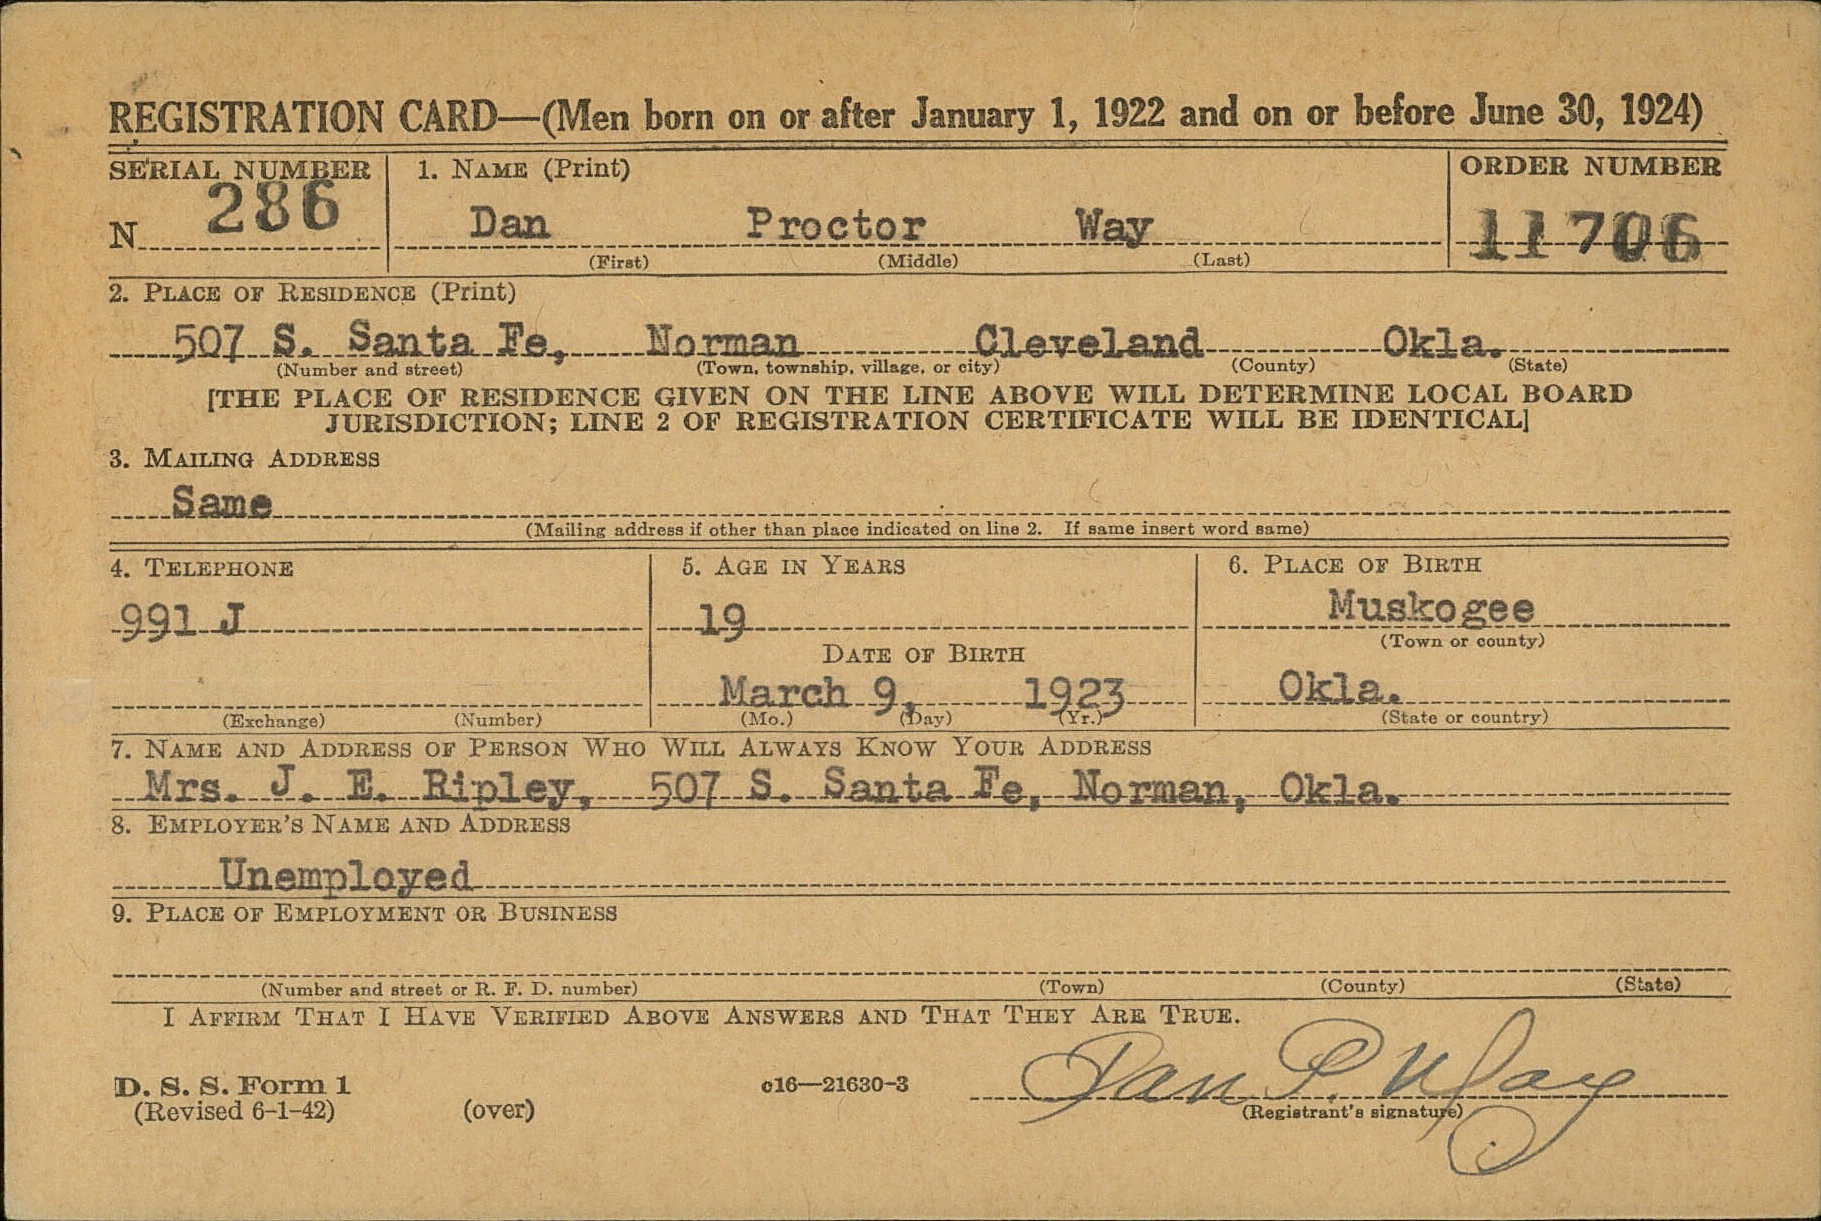 REGISTRATION CARD—(Men born on or after January 1, 1922 and on or before June 30, 1924)
SERIAL NUMBER 1. NAME (Print) ORDER NUMBER
N 286 Dan Proctor Way 11706
(First) (Middle) (Last)
2. PLACE OF RESIDENCE (Print)
507 S. Santa Fe, Norman Cleveland Okla.
(Number and street) (Town, township, village, or city) (County) (State)
[THE PLACE OF RESIDENCE GIVEN ON THE LINE ABOVE WILL DETERMINE LOCAL BOARD
JURISDICTION; LINE 2 OF REGISTRATION CERTIFICATE WILL BE IDENTICAL]
3. MAILING ADDRESS
Same
(Mailing address if other than place indicated on line 2. If same insert word same)
4. TELEPHONE 5. AGE IN YEARS 6. PLACE OF BIRTH
991 J 19 Muskogee
(Town or county)
DATE OF BIRTH
March 9, 1923 Okla.
(Exchange) (Number) (Mo.) (Day) (Yr.) (State or country)
7. NAME AND ADDRESS OF PERSON WHO WILL ALWAYS KNOW YOUR ADDRESS
Mrs. J. E. Ripley, 507 S. Santa Fe, Norman, Okla.
8. EMPLOYER'S NAME AND ADDRESS
Unemployed
9. PLACE OF EMPLOYMENT OR BUSINESS
(Number and street or R. F. D. number) (Town) (County) (State)
I AFFIRM THAT I HAVE VERIFIED ABOVE ANSWERS AND THAT THEY ARE TRUE.
D. S. S. Form 1 c16—21630-3 Dan P. Way
(Revised 6-1-42) (over) (Registrant's signature)